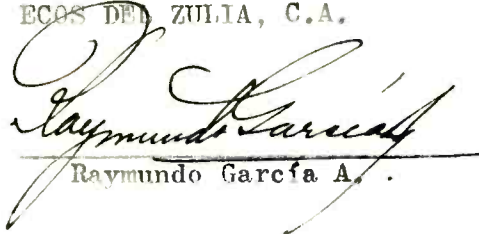 ECOS DEL ZULIA, C.A.
Raymundo García
Raymundo García A. .